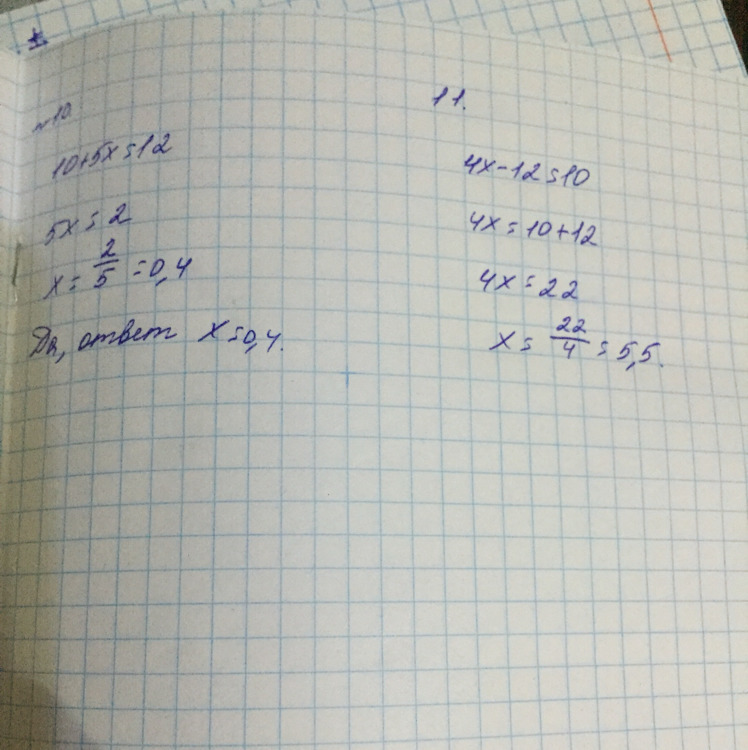 №10.
10+5x=12
5x=2
x=2/5=0,4
Да, ответ x=0,4.
11.
4x-12=10
4x=10+12
4x=22
x=22/4=5,5.